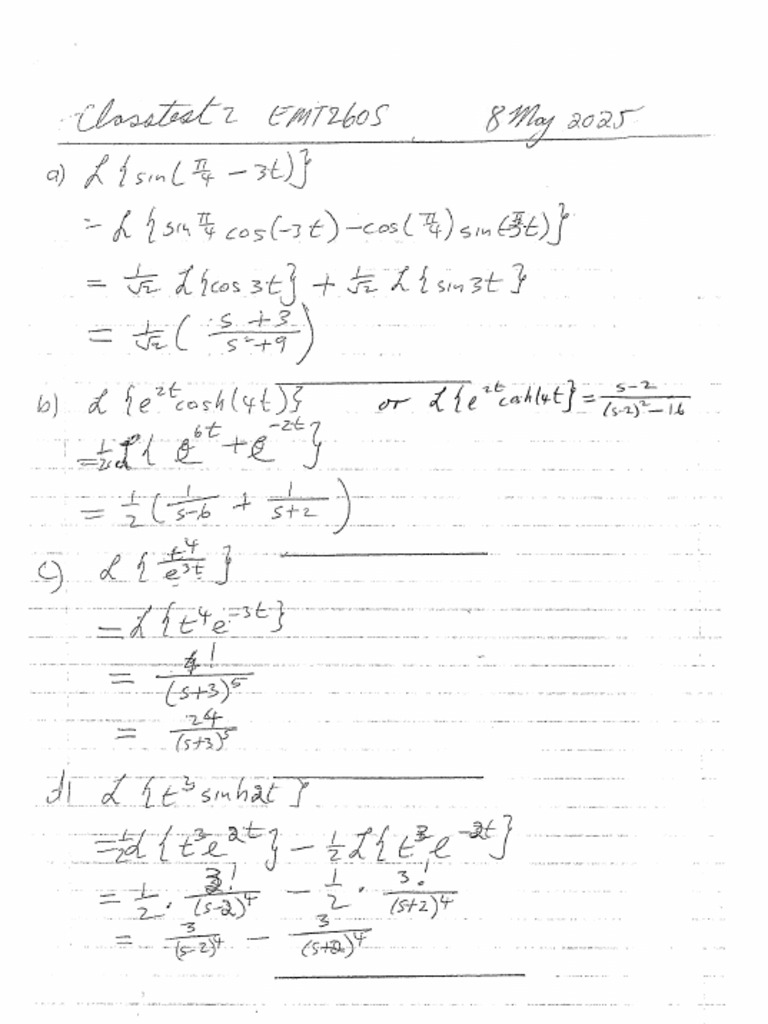 Classtest 2 EMT260S 8 May 2025
a) ℒ{sin(π/4 − 3t)}
= ℒ{sin π/4 cos(−3t) − cos(π/4) sin(3t)}
= 1/√2 ℒ{cos 3t} + 1/√2 ℒ{sin 3t}
= 1/√2 ( (s + 3)/(s² + 9) )
b) ℒ{e^{2t} cosh(4t)} or ℒ{e^{2t} cosh(4t)} = (s−2)/((s−2)² − 16)
= 1/2 ℒ{e^{6t} + e^{−2t}}
= 1/2 ( 1/(s−6) + 1/(s+2) )
c) ℒ{t⁴/e^{3t}}
= ℒ{t⁴ e^{−3t}}
= 4!/(s+3)⁵
= 24/(s+3)⁵
d) ℒ{t³ sinh 2t}
= 1/2 ℒ{t³ e^{2t}} − 1/2 ℒ{t³ e^{−2t}}
= 1/2 · 3!/(s−2)⁴ − 1/2 · 3!/(s+2)⁴
= 3/(s−2)⁴ − 3/(s+2)⁴